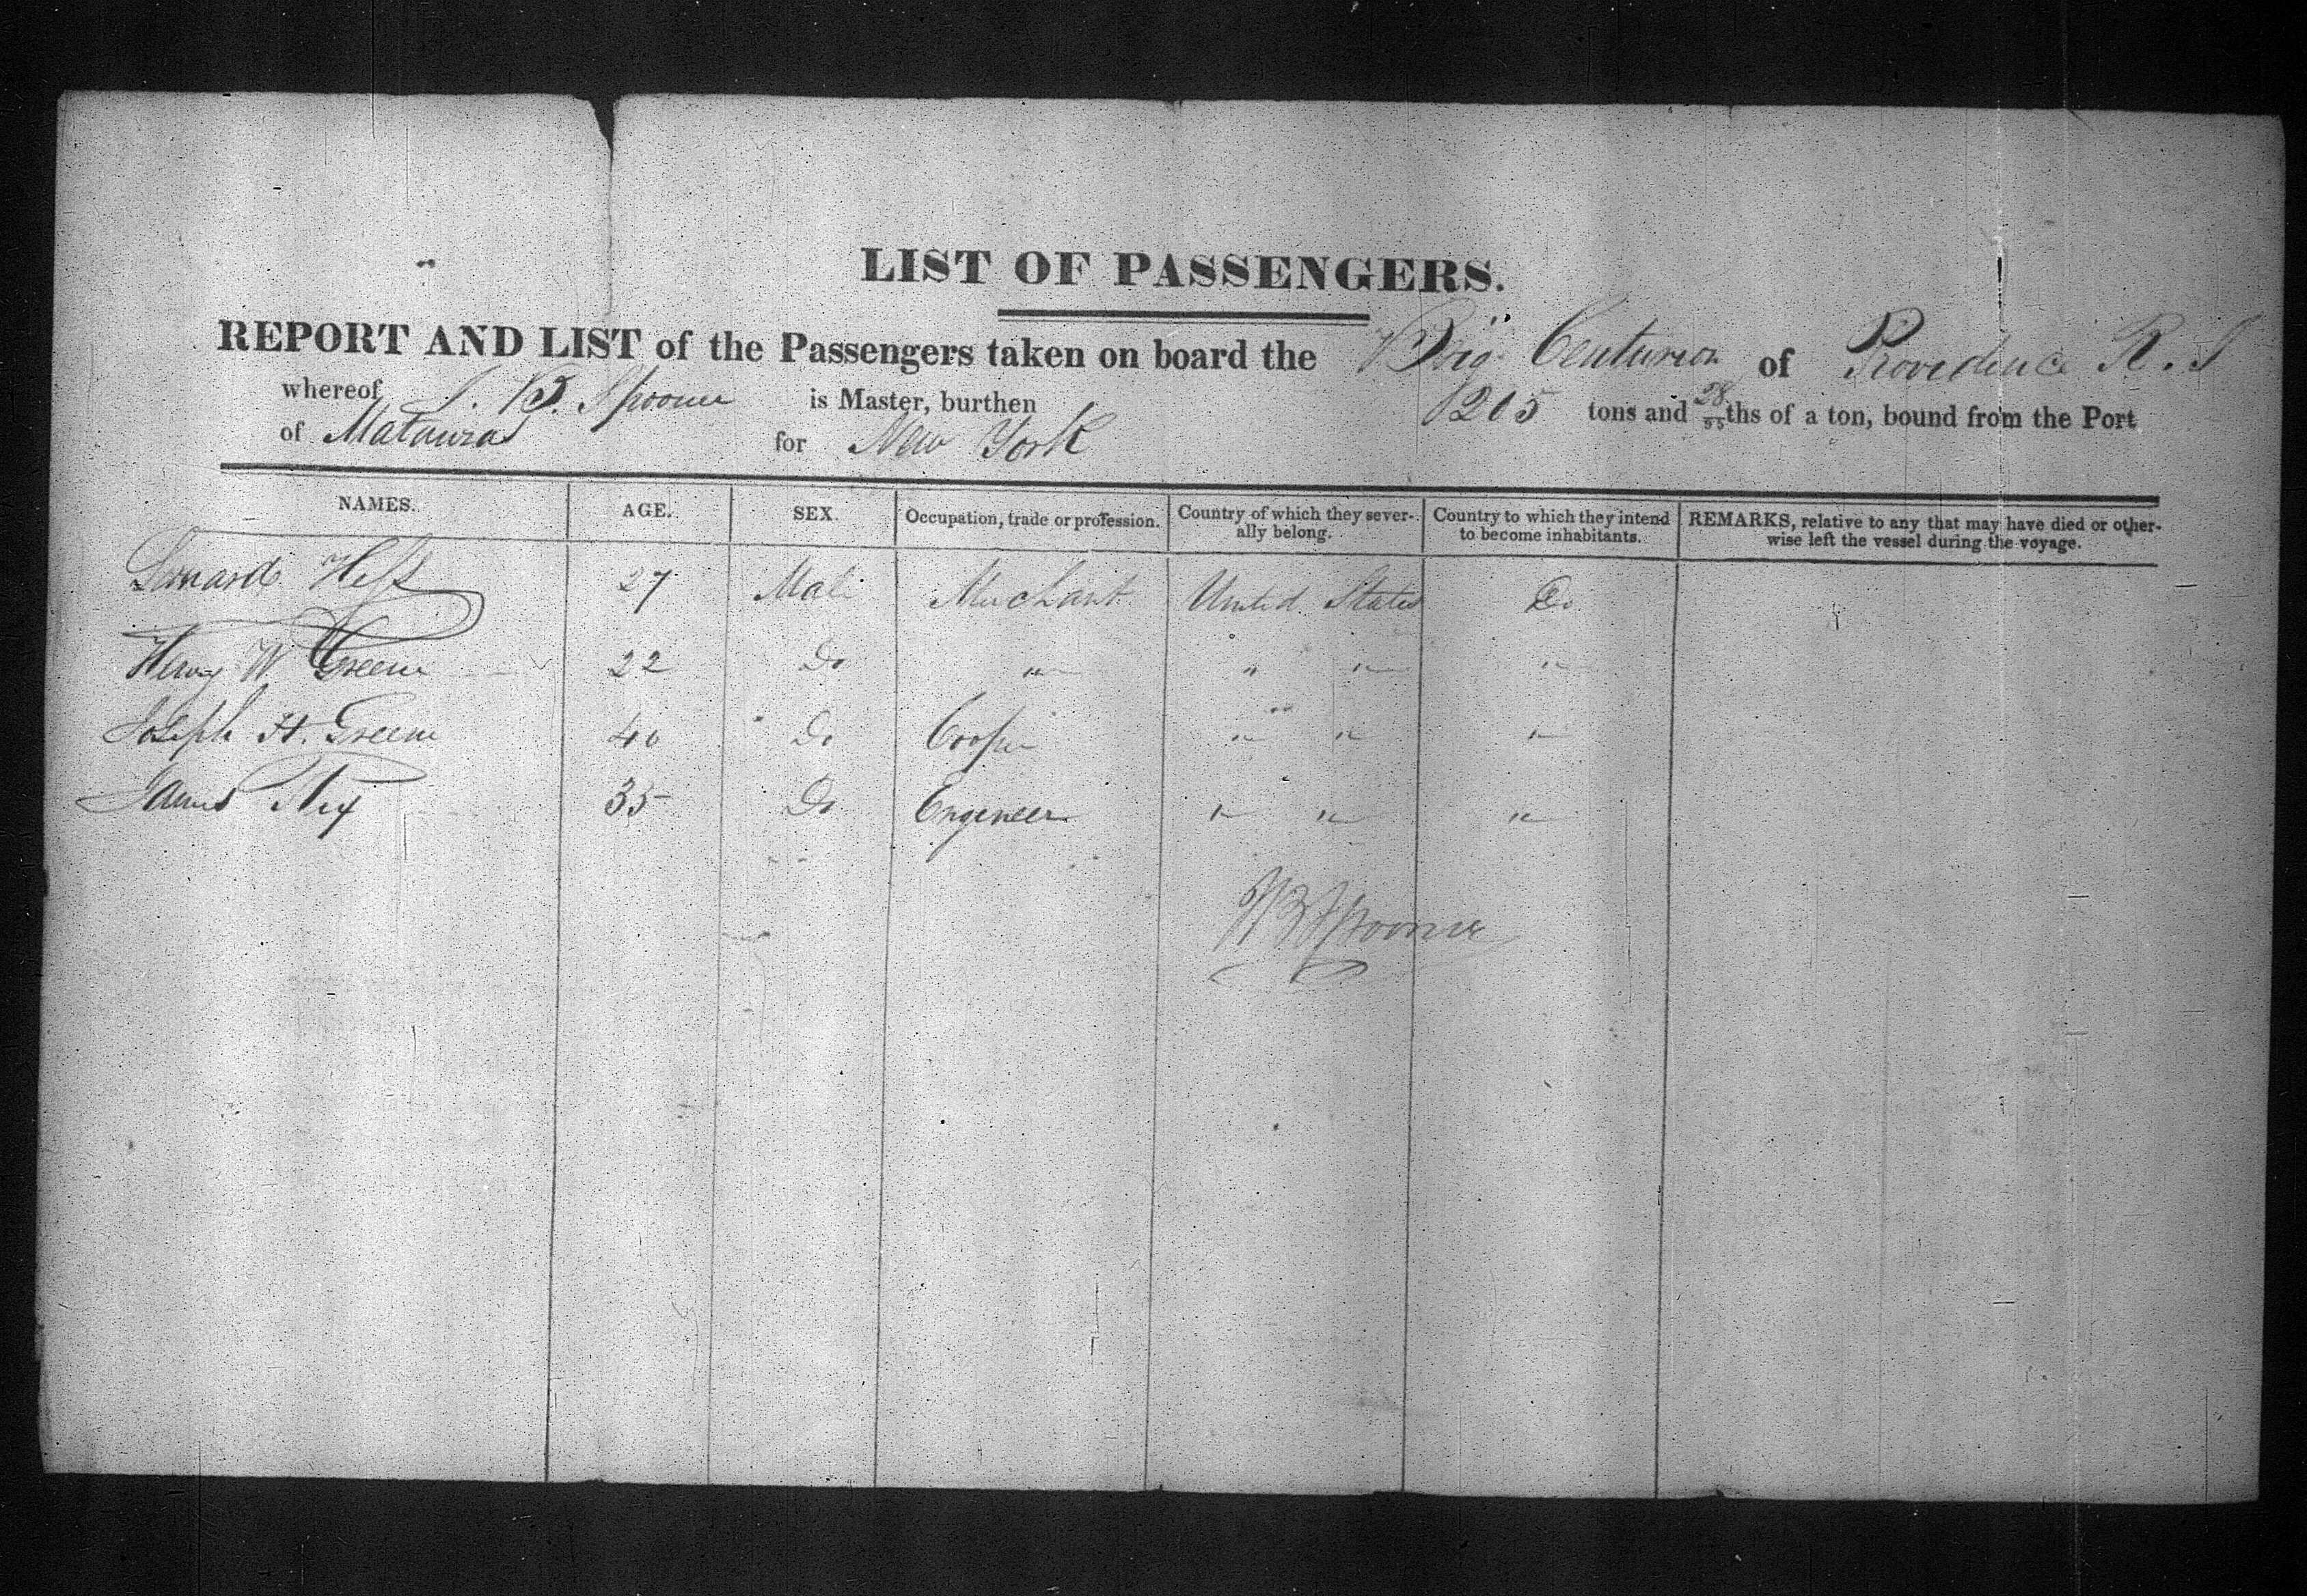 LIST OF PASSENGERS.
REPORT AND LIST of the Passengers taken on board the Brig Centurion of Providence R. I
whereof B. Spooner is Master, burthen 205 tons and 28/95ths of a ton, bound from the Port
of Matanzas for New York
NAMES. AGE. SEX. Occupation, trade or profession. Country of which they severally belong. Country to which they intend to become inhabitants. REMARKS, relative to any that may have died or otherwise left the vessel during the voyage.
Leonard Hess 27 Male Merchant United States Do
Henry W. Greene 22 Do " " " "
Joseph H. Greene 40 Do Cooper " " "
James 35 Do Engineer " " "
B Spooner